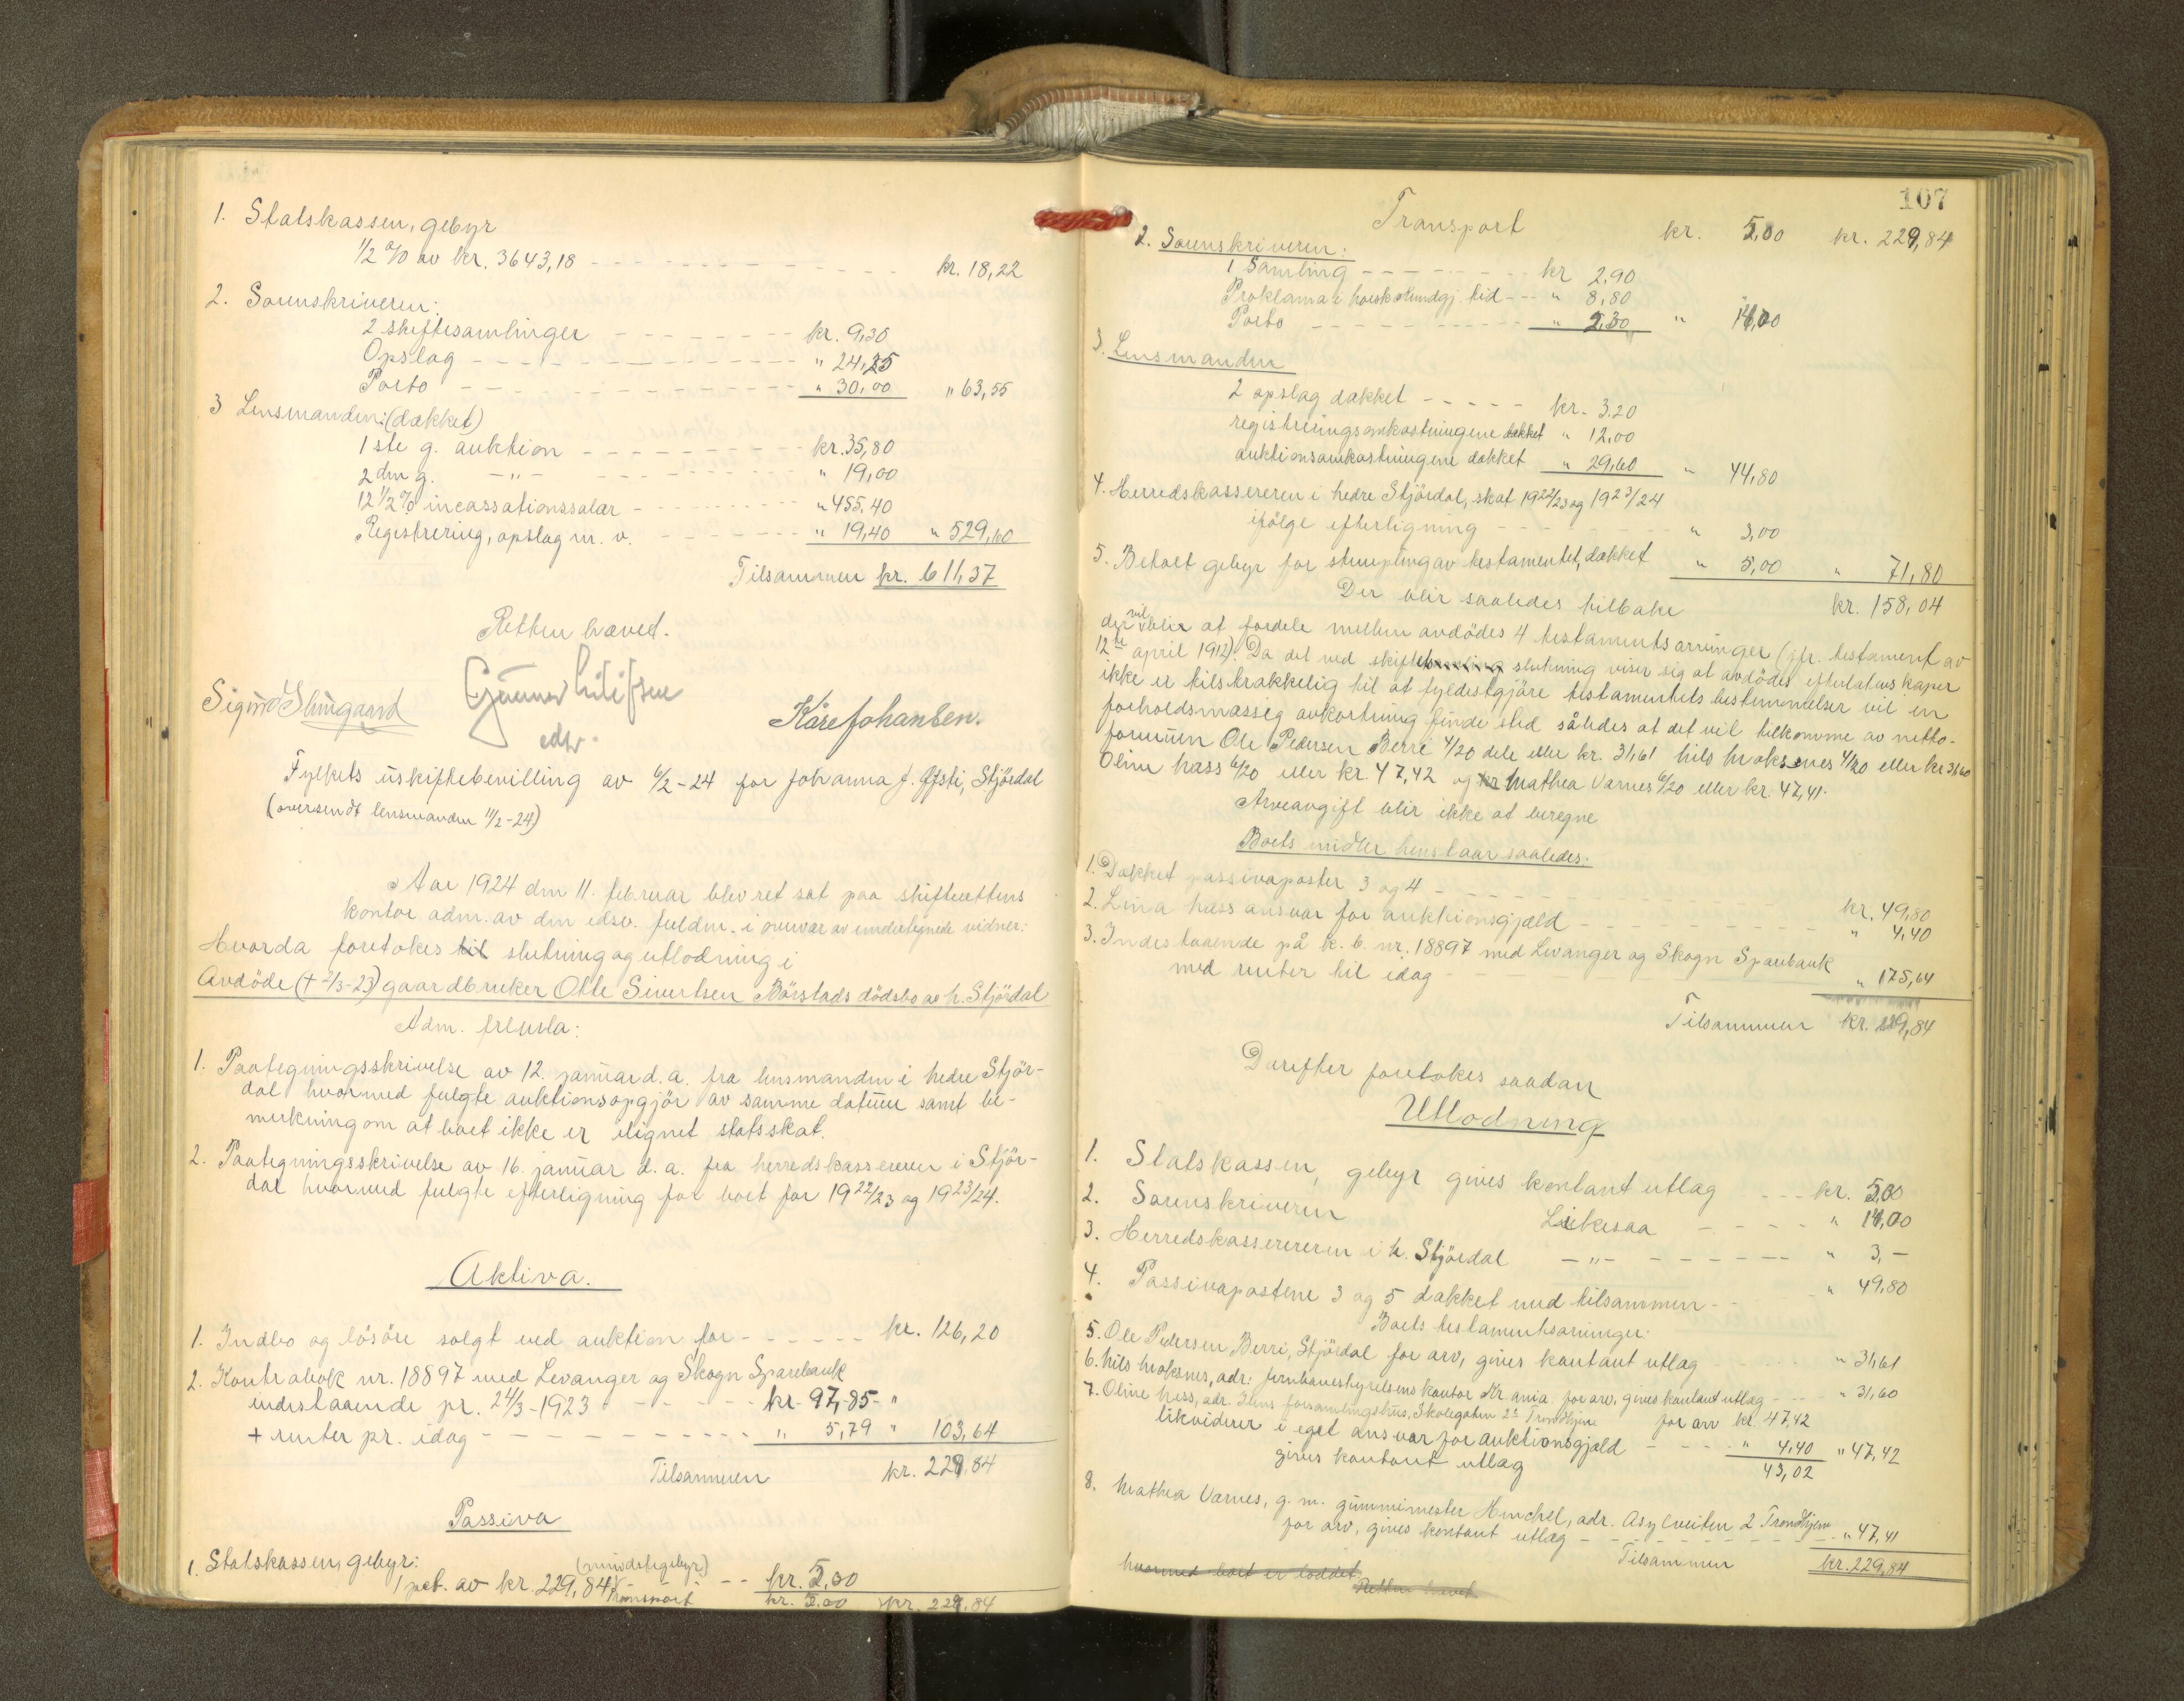 1. Statskassen, gebyr
1/2 % av kr. 3643,18 - - - - - - - kr. 18,22
2. Sorenskriveren:
2 skiftesamlinger - - - - - - kr. 9,30
Opslag - - - - - - - - - - " 24,25
Porto - - - - - - - - - - " 30,00 " 63,55
3 Lensmanden: (dækket)
1ste g. auktion - - - - - - - - kr. 35,80
2den g. - " - - - - - - - - " 19,00
12 1/2 % incassationssalær - - - - - - " 455.40
Registrering, opslag m. v. - - - - - - " 19,40 " 529,60
Tilsammen kr. 611,37
Retten hævet.
edsv.
Kåre Johansen.
Fylkets uskiftebevilling av 6/2-24 for Johanna J. Øfsti, Stjørdal
(oversendt lensmanden 11/2-24)
Aar 1924 den 11. februar blev ret sat paa skifterettens
kontor adm. av den edsv. fuldm. i overvær av undertegnede vidner:
Hvorda foretokes til slutning og utlodning i
Avdøde (+ 2/3-23) gaardbruker Olle Sivertsen Børstads dødsbo av h. Stjördal
Adm. fremla:
1. Paategningsskrivelse av 12. januar d. a. fra lensmanden i nedre Stjör-
dal hvormed fulgte auktionsopgjör av samme datum samt be-
merkning om at boet ikke er ilignet statsskat.
2. Paategningsskrivelse av 16. januar d. a. fra herredskassereren i Stjör-
dal hvormed fulgte efterligning for boet for 1922/23 og 1923/24.
Aktiva.
1. Indbo og lösöre solgt ved auktion for - - - - - kr. 126,20
2. Kontrabok nr. 18897 med Levanger og Skogn Sparebank
indestaaende pr. 24/3-1923 - - - - - kr. 97,85 - "
+ renter pr. idag - - - - - - - - - " 5,79 " 103,64
Tilsammen kr. 229,84
Passiva
1. Statskassen, gebyr: (mindstegebyr)
1 pct. av kr. 229,84 - - - kr. 5,00
Transport kr. 5.00 kr. 229,84
107
Transport kr. 5,00 kr. 229,84
2. Sorenskriveren:
1 Samling - - - - - - - kr 2,90
Proklama i norsk kundgj. tid - - " 8,80
Porto - - - - - - - - - - " 2,30 " 14,00
3. Lensmanden
2 opslag dækket - - - - - kr. 3.20
registreringsomkostningene dækket " 12,00
auktionsomkostningene dækket " 29,60 " 44,80
4. Herredskassereren i nedre Stjördal, skat 1922/23 og 1923/24
ifölge efterligning - - - - - " 3,00
5. Betalt gebyr for stempling av testamentet, dækket " 5,00 " 71,80
Der blir saaledes tilbake kr. 158,04
der vil blir at fordele mellem avdödes 4 testamentsarvinger (jfr. testament av
12te april 1912). Da det ved skiftets slutning viser sig at avdödes efterlatenskaper
ikke er tilstrækkelig til at fyldestgjöre testamentets bestemmelser vil en
forholdsmæssig avkortning finde sted således at det vil tilkomme av netto-
formuen Ole Pedersen Berre 4/20 dele eller kr. 31,61 Nils Moksnes 4/20 eller kr 31,60
Oline Næss 6/20 eller kr. 47,42 og Mathea Værnes 6/20 eller kr. 47,41.
Arveavgift blir ikke at beregne
Boets midler henstaar saaledes:
1. Dækket passivaposter 3 og 4 - - - - - kr. 49,80
2. Lina Næss ansvar for auktionsgjæld - - - - - " 4,40
3. Indestaaende på k. b. nr. 18897 med Levanger og Skogn Sparebank
med renter til idag - - - - - " 175,64
Tilsammen kr. 229,84
Derefter foretokes saadan
Utlodning
1. Statskassen, gebyr gives kontant utlag - - - kr. 5,00
2. Sorenskriveren Likesaa - - - - " 14,00
3. Herredskassereren i n. Stjördal - " - - - - - " 3,-
4. Passivapostene 3 og 5 dækket med tilsammen - - - " 49,80
Boets testamentsarvinger:
5. Ole Pedersen Berre, Stjördal for arv, gives kontant utlag - - - - " 31,61
6. Nils Moksnes, adr. Jernbanestyrelsens kontor Kr.ania for arv, gives kontant utlag - - - " 31,60
7. Oline Næss, adr. Ilens forsamlingshus, Skolegaten 2b Trondhjem for arv kr. 47,42
likviderer i eget ansvar for auktionsgjæld - - - - " 4,40 " 47,42
gives kontant utlag 43,02
8. Mathea Værnes, g. m. Henchel, adr. Asylveiten 2 Trondhjem
for arv, gives kontant utlag - - - - - " 47,41
Tilsammen kr. 229,84
hvormed boet er loddet.
Retten hævet